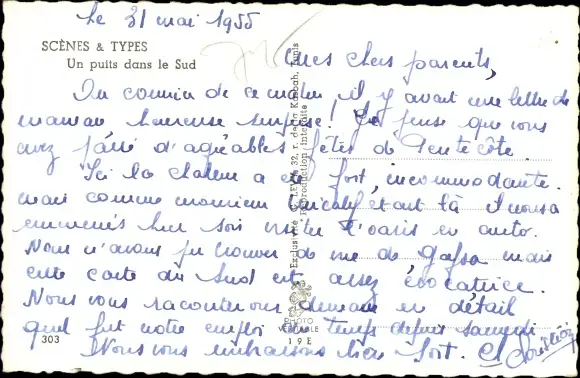 Le 31 mai 1955
SCÈNES & TYPES
Un puits dans le Sud
Mes chers parents,
Au courrier de ce matin, il y avait une lettre de
maman heureuse surprise! Je pense que vous
avez passé d'agréables fêtes de Pentecôte.
Ici la chaleur a été fort, incommodante.
mais comme monsieur était là il nous a
emmenés hier soir visiter l'oasis en auto.
Nous n'avons pu trouver de vue de Gafsa mais
cette carte du Sud est assez évocatrice.
Nous vous raconterons demain en détail
quel fut notre emploi du temps depuis samedi.
Nous vous embrassons bien fort. et
303
Exclusivité C. LÉVY 32, r. de la Kasbah, Tunis
Reproduction interdite
PHOTO
VÉRITABLE
19E